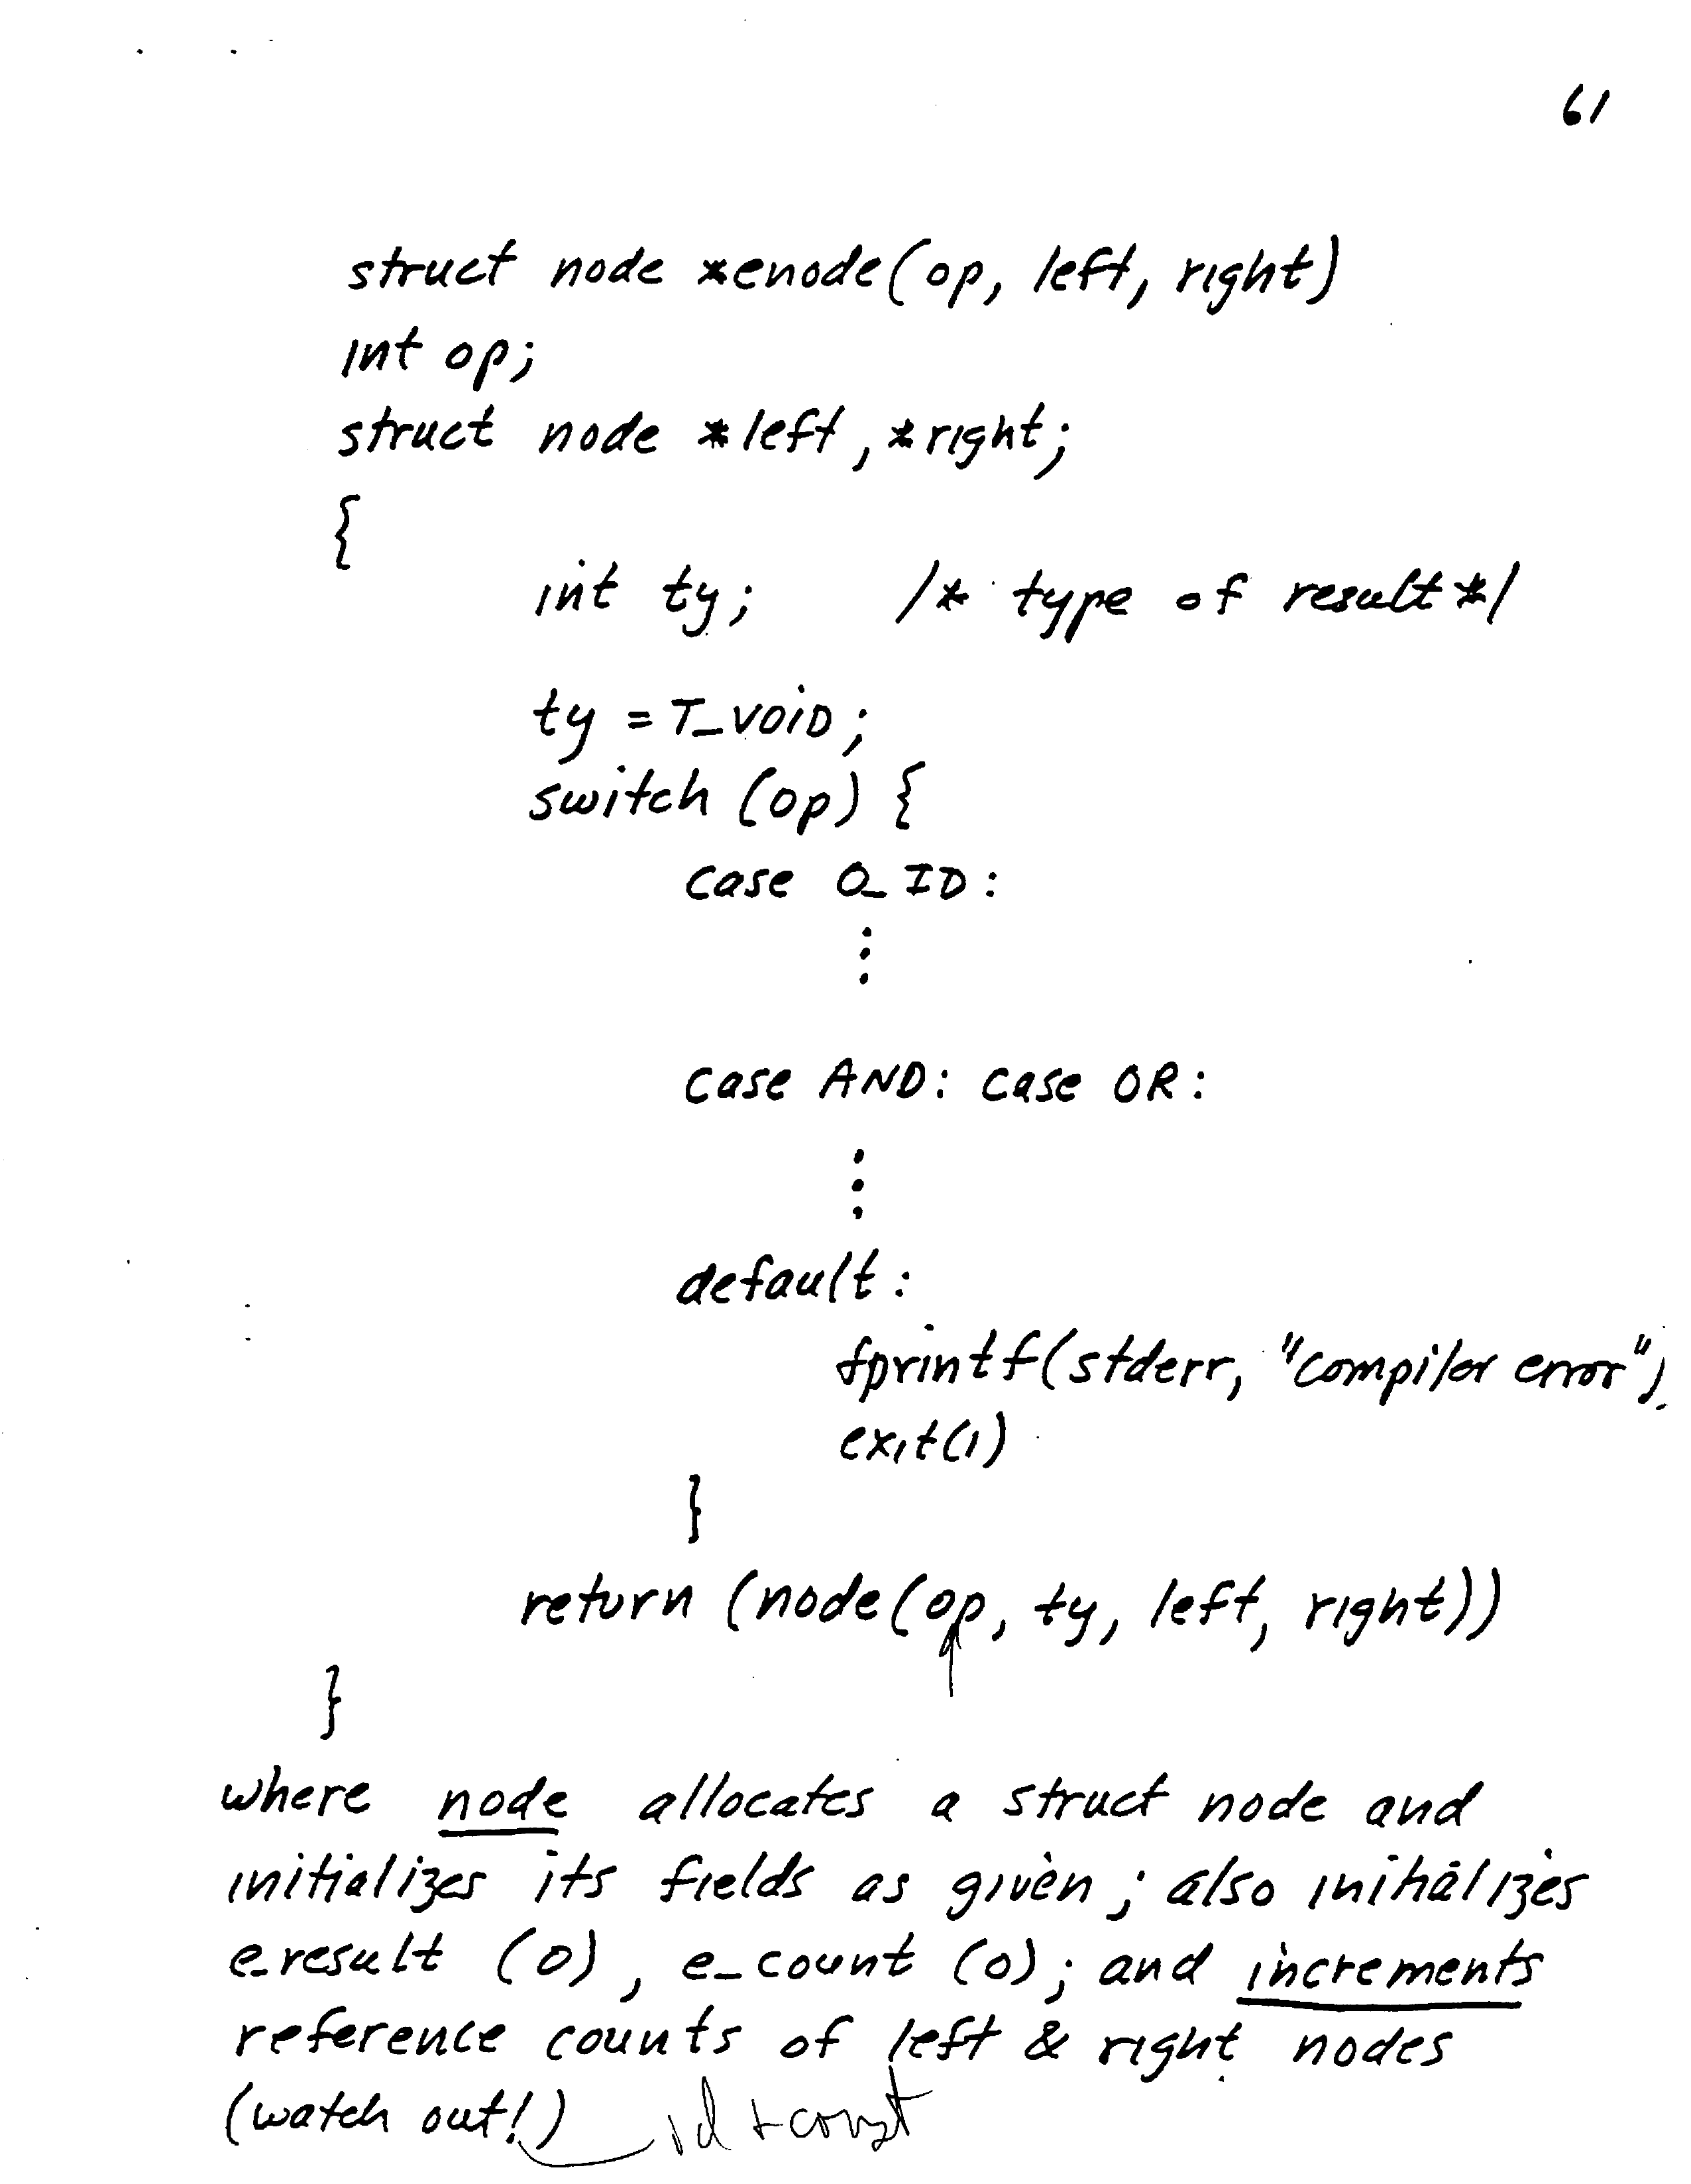 61
struct node *enode(op, left, right)
int op;
struct node *left, *right;
{
int ty; /* type of result */
ty = T_VOID;
switch (op) {
case O_ID:
⋮
case AND: case OR:
⋮
default:
fprintf(stderr, "compiler error");
exit(1)
}
return (node(op, ty, left, right))
}
where node allocates a struct node and
initializes its fields as given; also initializes
e_result (0), e_count (0); and increments
reference counts of left & right nodes
(watch out!) id + const